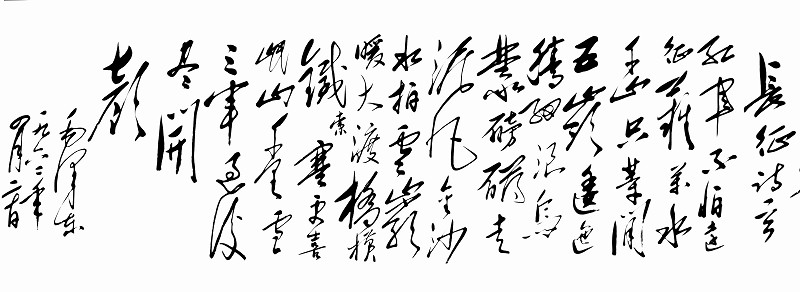 長征詩一首
紅軍不怕遠
征難萬水
千山只等閒
五嶺逶迤
騰細浪烏
蒙磅礴走
泥丸金沙
水拍雲崖
暖大渡橋橫
鐵索寒更喜
岷山千里雪
三軍過後
盡開
顏
毛澤東
一九六二年
四月二十日